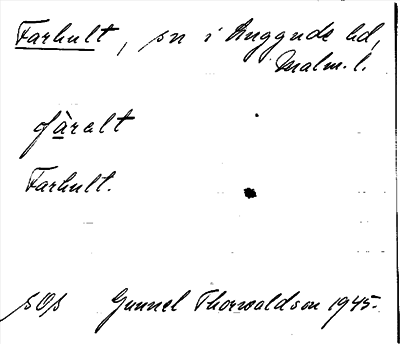 Farhult, sn i Luggude hd,
Malm. l.
fàralt
Farhult.
sOs Gunnel Thorvaldson 1945.